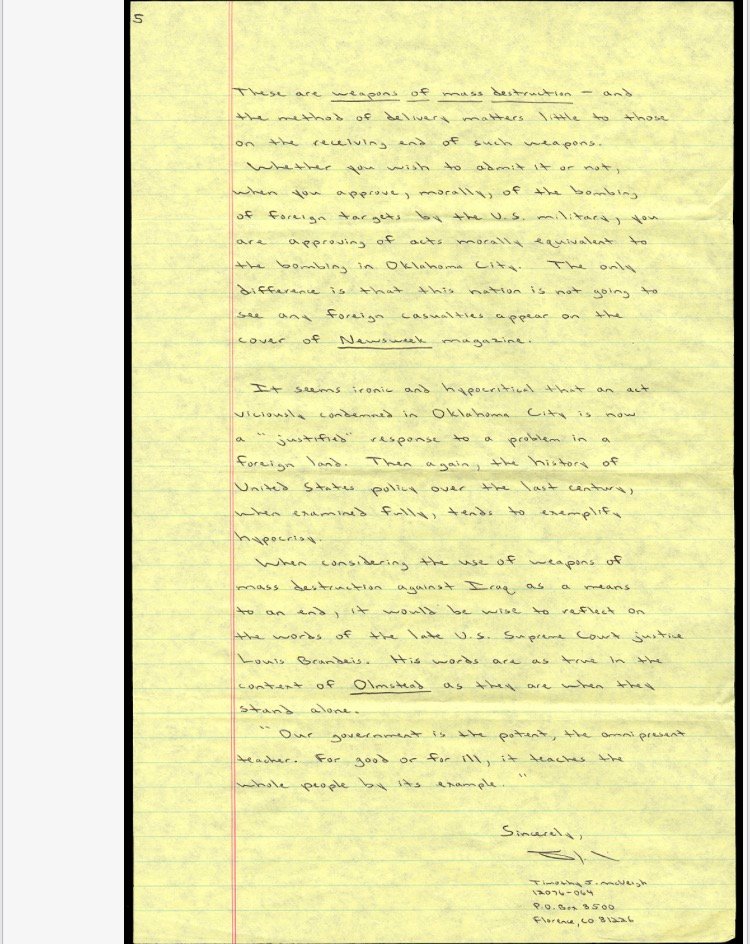 5
These are weapons of mass destruction – and
the method of delivery matters little to those
on the receiving end of such weapons.
Whether you wish to admit it or not,
when you approve, morally, of the bombing
of foreign targets by the U.S. military, you
are approving of acts morally equivalent to
the bombing in Oklahoma City. The only
difference is that this nation is not going to
see any foreign casualties appear on the
cover of Newsweek magazine.
It seems ironic and hypocritical that an act
viciously condemned in Oklahoma City is now
a "justified" response to a problem in a
foreign land. Then again, the history of
United States policy over the last century,
when examined fully, tends to exemplify
hypocrisy.
When considering the use of weapons of
mass destruction against Iraq as a means
to an end, it would be wise to reflect on
the words of the late U.S. Supreme Court justice
Louis Brandeis. His words are as true in the
context of Olmstead as they are when they
stand alone.
"Our government is the potent, the omnipresent
teacher. For good or for ill, it teaches the
whole people by its example."
Sincerely,
Timothy J. McVeigh
12076-064
P.O. Box 8500
Florence, CO 81226